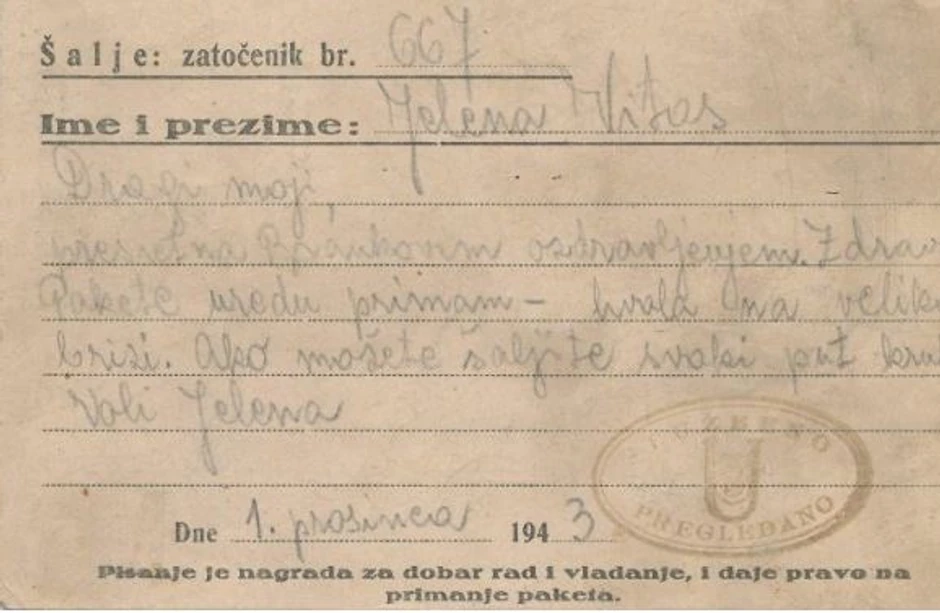 Šalje: zatočenik br. 667
Ime i prezime: Jelena Vitas
Dragi moji,
presretna Brankovim ozdravljenjem. Zdrav
Pakete uredu primam - hvala na velik
brizi. Ako možete šaljite svaki put kru
Voli Jelena
UREDNO
U
PREGLEDANO
Dne 1. prosinca 1943
Pisanje je nagrada za dobar rad i vladanje, i daje pravo na
primanje paketa.